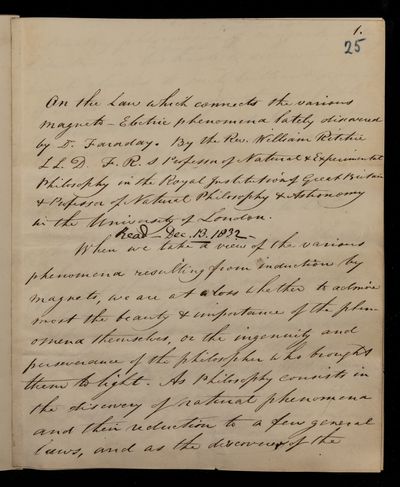 1.
25
On the Law which connects the various
Magneto-Electric phenomena lately discovered
by Dr. Faraday. By the Rev. William Ritchie
LL.D. F.R.S Professor of Natural & Experimental
Philosophy in the Royal Institution of Great Britain
& Professor of Natural Philosophy & Astronomy
in the University of London.
Read – Dec. 13. 1832 –
When we take a view of the various
phenomena resulting from induction by
magnets, we are at a loss whether to admire
most the beauty & importance of the phen-
omena themselves, or the ingenuity and
perseverance of the philosopher who brought
them to light. As Philosophy consists in
the discovery of natural phenomena
and their reduction to a few general
laws, and as the discovery of the